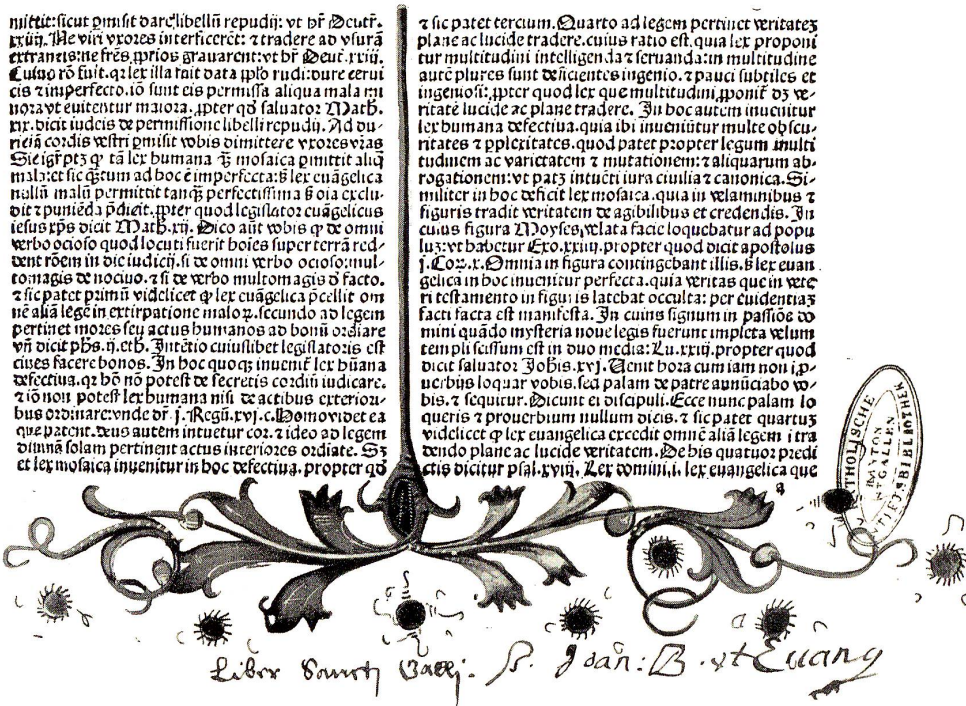 mittit: sicut ꝓmisit dare libellũ repudij: vt hr̃ Deutr̃.
xxiiij. Ne viri vxores interficerẽt: ⁊ tradere ad vsurã
extraneis: ne frẽs ꝓprios grauarent: vt hr̃ Deut. xxiii.
Cuius rõ fuit. qꝛ lex illa fuit data ppl̃o rudi: dure cerui
cis ⁊ imperfecto. iõ sunt eis permissa aliqua mala mi
nora vt euitentur maiora. ꝓpter qd̃ saluator Math.
xix. dicit iudeis de permissione libelli repudij. Ad du-
riciã cordis vestri ꝑmisit vobis dimittere vxores vr̃as
Sic igr̃ ptꝫ ꝙ tã lex humana ꝙ̃ mosaica ꝑmittit aliq̃
mala: et sic q̃tum ad hoc ẽ imperfecta: sꝫ lex euãgelica
nullũ malũ permittit tanꝙ̃ perfectissima sꝫ oĩa exclu-
dit ⁊ puniẽda p̃dicit. ꝓpter quod legislator euãgelicus
iesus xp̃s dicit Math. xij. Dico aũt vobis ꝙ de omni
verbo ocioso quod locuti fuerit hoĩes super terrã red-
dent rõem in die iudicij. si de omni verbo ocioso: mul-
tomagis de nociuo. ⁊ si de verbo multomagis d̃ facto.
⁊ sic patet primũ videlicet ꝙ lex euãgelica p̃cellit om
nẽ aliã legẽ in extirpatione maloꝝ. secundo ad legem
pertinet mores seu actus humanos ad bonũ ordiare
vñ dicit ph̃s. ij. eth. Intẽtio cuiuslibet legislatoris est
ciues facere bonos. In hoc quoqꝫ inuenit̃ lex hũana
defectiua. qꝛ hõ nõ potest de secretis cordiũ iudicare.
⁊ iõ non potest lex humana nisi de actibus exteriori-
bus ordinare. vnde dr̃. j. Regũ. xvj. c. Homo videt ea
que patent. deus autem intuetur cor. ⁊ ideo ad legem
diuinã solam pertinent actus interiores ordiate. Sꝫ
et lex mosaica inuenitur in hoc defectiua. propter qd̃
⁊ sic patet tercium. Quarto ad legem pertinet veritateꝫ
plane ac lucide tradere. cuius ratio est. quia lex proponi
tur multitudini intelligenda ⁊ seruanda: in multitudine
autẽ plures sunt deficientes ingenio. ⁊ pauci subtiles et
ingeniosi: ꝓpter quod lex que multitudini ꝓponit̃ dꝫ ve-
ritatẽ lucide ac plane tradere. In hoc autem inuenitur
lex humana defectiua. quia ibi inueniũtur multe obscu-
ritates ⁊ ꝑplexitates. quod patet propter legum multi
tudinem ac varietatem ⁊ mutationem: ⁊ aliquarum ab-
rogationem: vt patꝫ intuẽti iura ciuilia ⁊ canonica. Si-
militer in hoc deficit lex mosaica. quia in velaminibus ⁊
figuris tradit veritatem de agibilibus et credendis. In
cuius figura Moyses, velata facie loquebatur ad popu
luꝫ: vt habetur Exo. xxiiij. propter quod dicit apostolus
j. Coꝝ. x. Omnia in figura contingebant illis. sꝫ lex euan
gelica in hoc inuenitur perfecta. quia veritas que in vete
ri testamento in figuris latebat occulta: per euidentiaꝫ
facti facta est manifesta. In cuius signum in passiõe do
mini quãdo mysteria noue legis fuerunt impleta velum
templi scissum est in duo media: Lu. xxiij. propter quod
dicit saluator Joh̃is. xvj. Uenit hora cum iam non i ꝓ-
uerbijs loquar vobis. sed palam de patre annũciabo vo-
bis. ⁊ sequitur. Dicunt ei discipuli. Ecce nunc palam lo
queris ⁊ prouerbium nullum dicis. ⁊ sic patet quartuꝫ
videlicet ꝙ lex euangelica excedit omnẽ aliã legem i tra
dendo plane ac lucide veritatem. De his quatuor predi
ctis dicitur psal. xviij. Lex domini. i. lex euangelica que
a
Liber Sancti Galli. S. Joãn: B. vt Euang